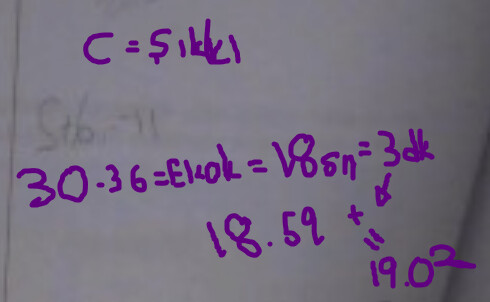 C = Şıkkı
30.36 = Ekok = 180sn = 3dk
18.59 +
=
19.02